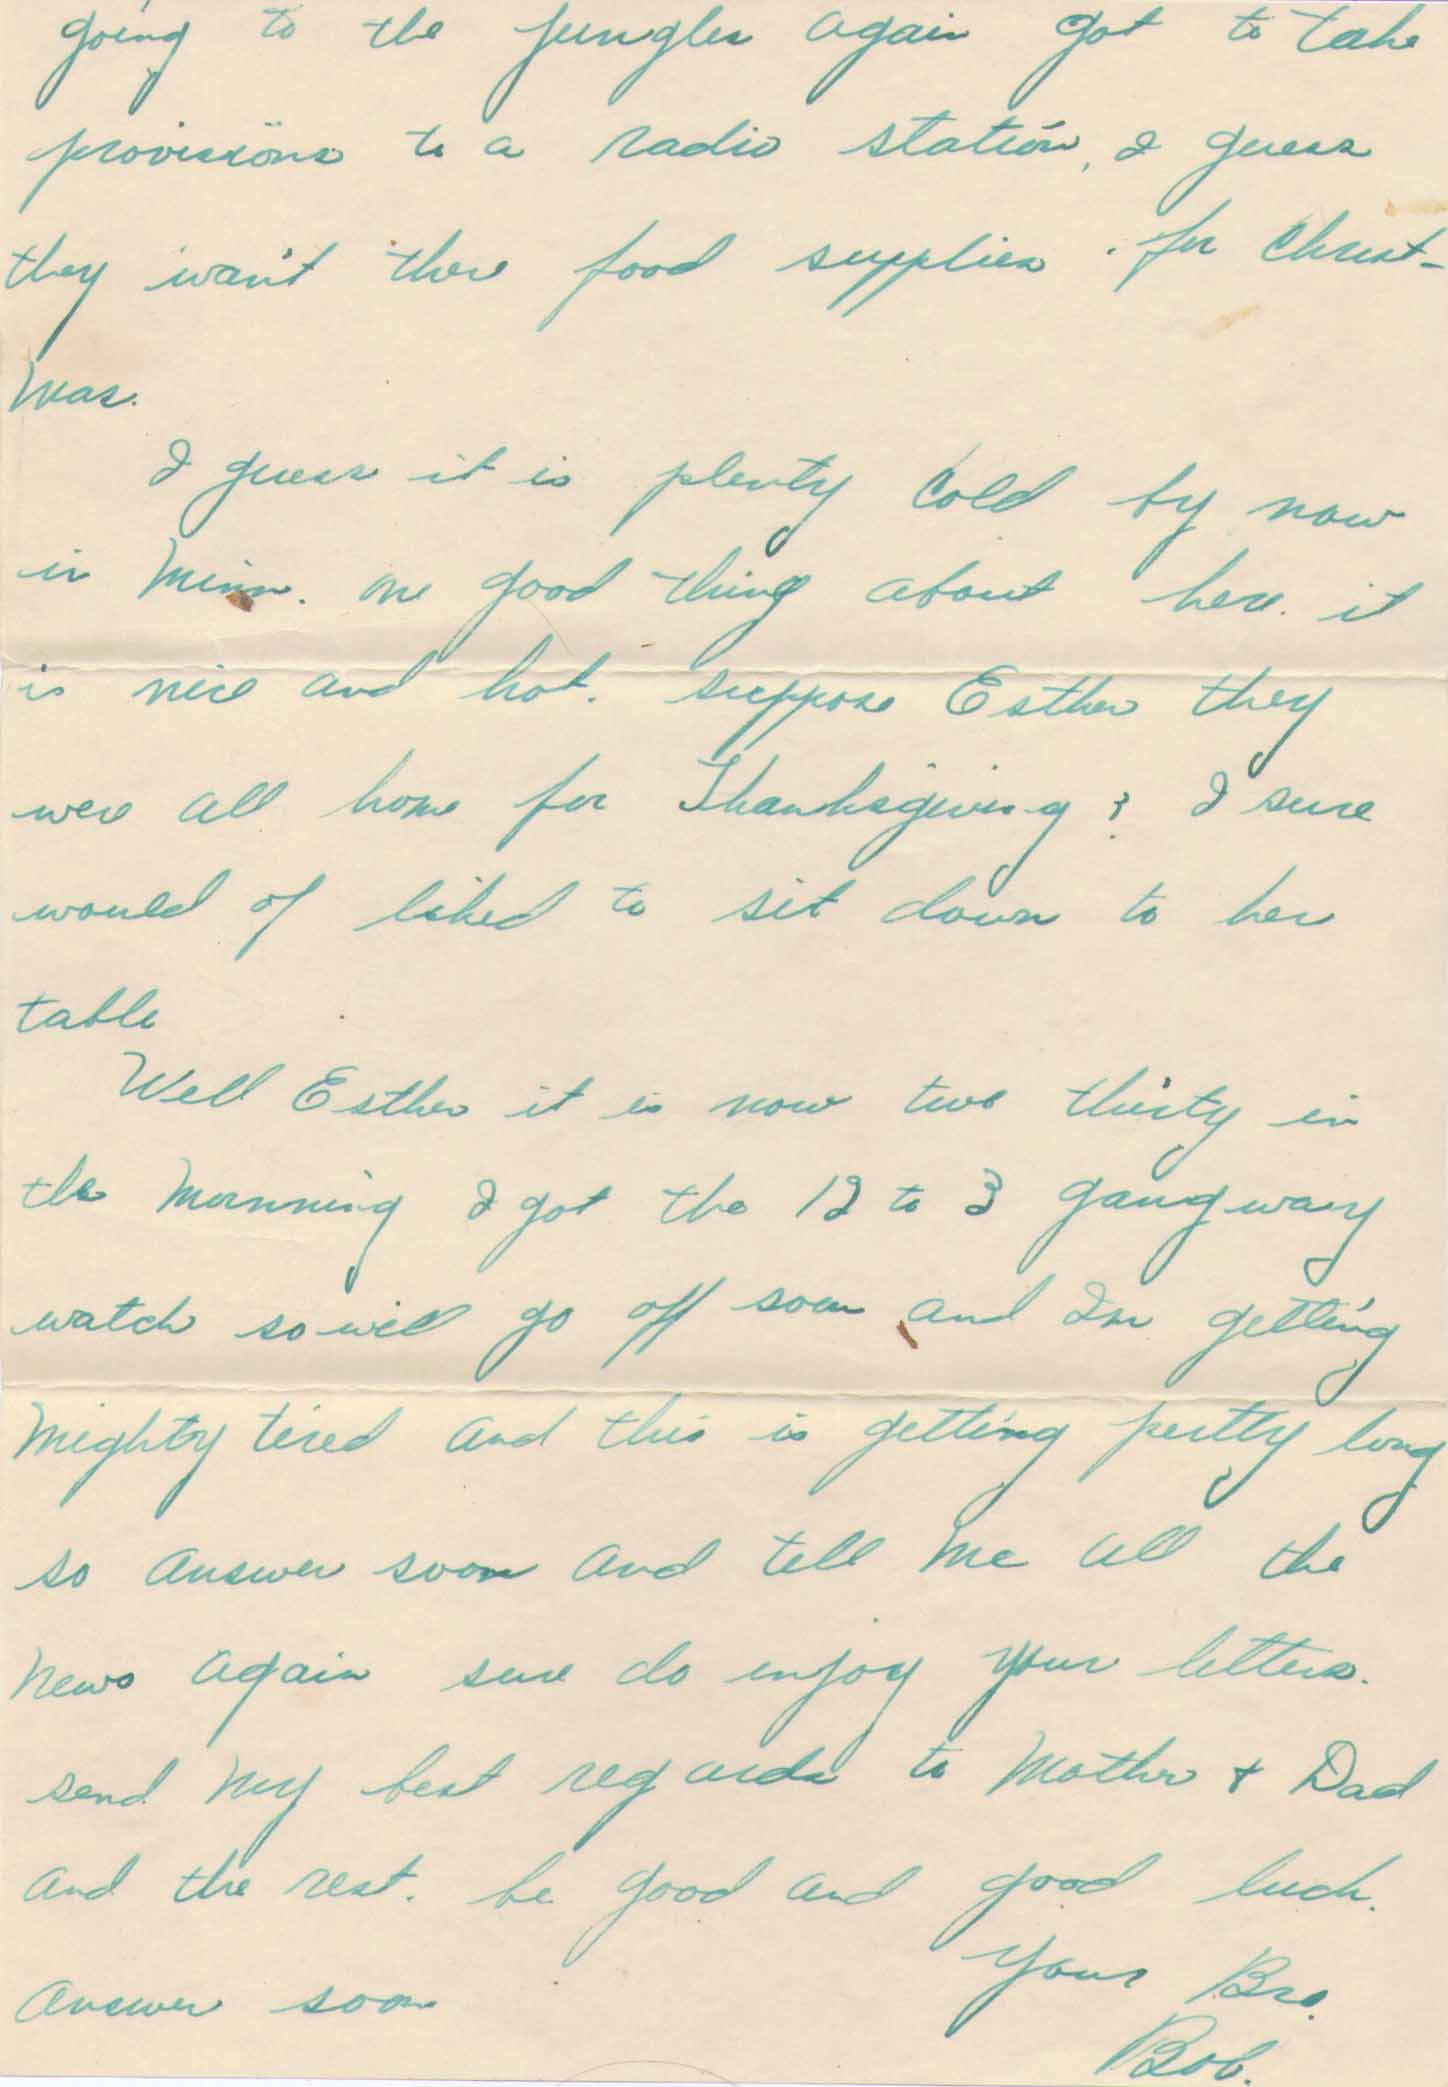 going to the jungles again got to take
provissions to a radio station, I guess
they want there food supplies for Christ-
mas.
I guess it is plenty cold by now
in Minn. one good thing about here it
is nice and hot. suppose Esther they
were all home for Thanksgiving ? I sure
would of liked to sit down to her
table
Well Esther it is now two thirty in
the mornning I got the 12 to 3 gangway
watch so will go off soon and Im getting
mighty tired and this is getting pertty long
so answer soon and tell me all the
news again sure do enjoy your letters.
send my best regards to Mother + Dad
and the rest. be good and good luck.
Your Bro.
answer soon
Bob.